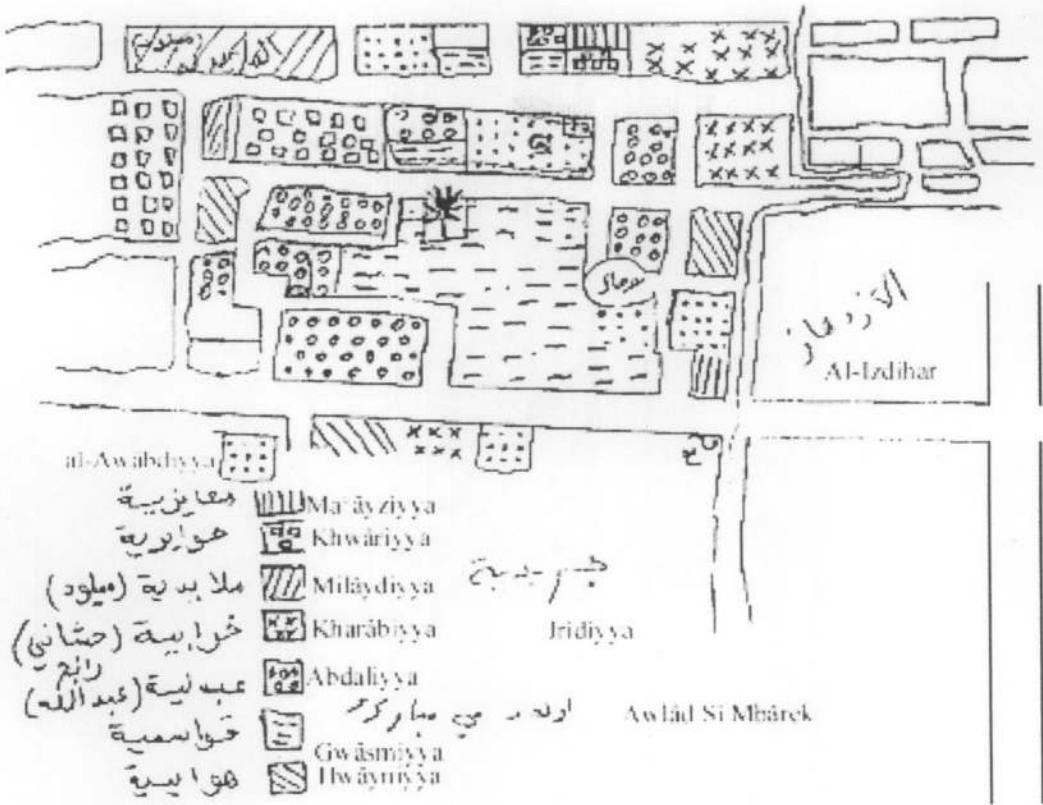 الازدهار
Al-Izdihar
al-Awabdiyya
معايزيية Ma'âyziyya
خوايرية Khwâriyya
ملا يدية (ميلود) Milâydiyya
خرابيية (حشاني) Kharâbiyya
رابح
عبد لية (عبد الله) Abdaliyya
قواسمية Gwâsmiyya
هوايمية Hwâymiyya
جريدية
Jridiyya
اولاد سي مبارك Awlâd Si Mbârek